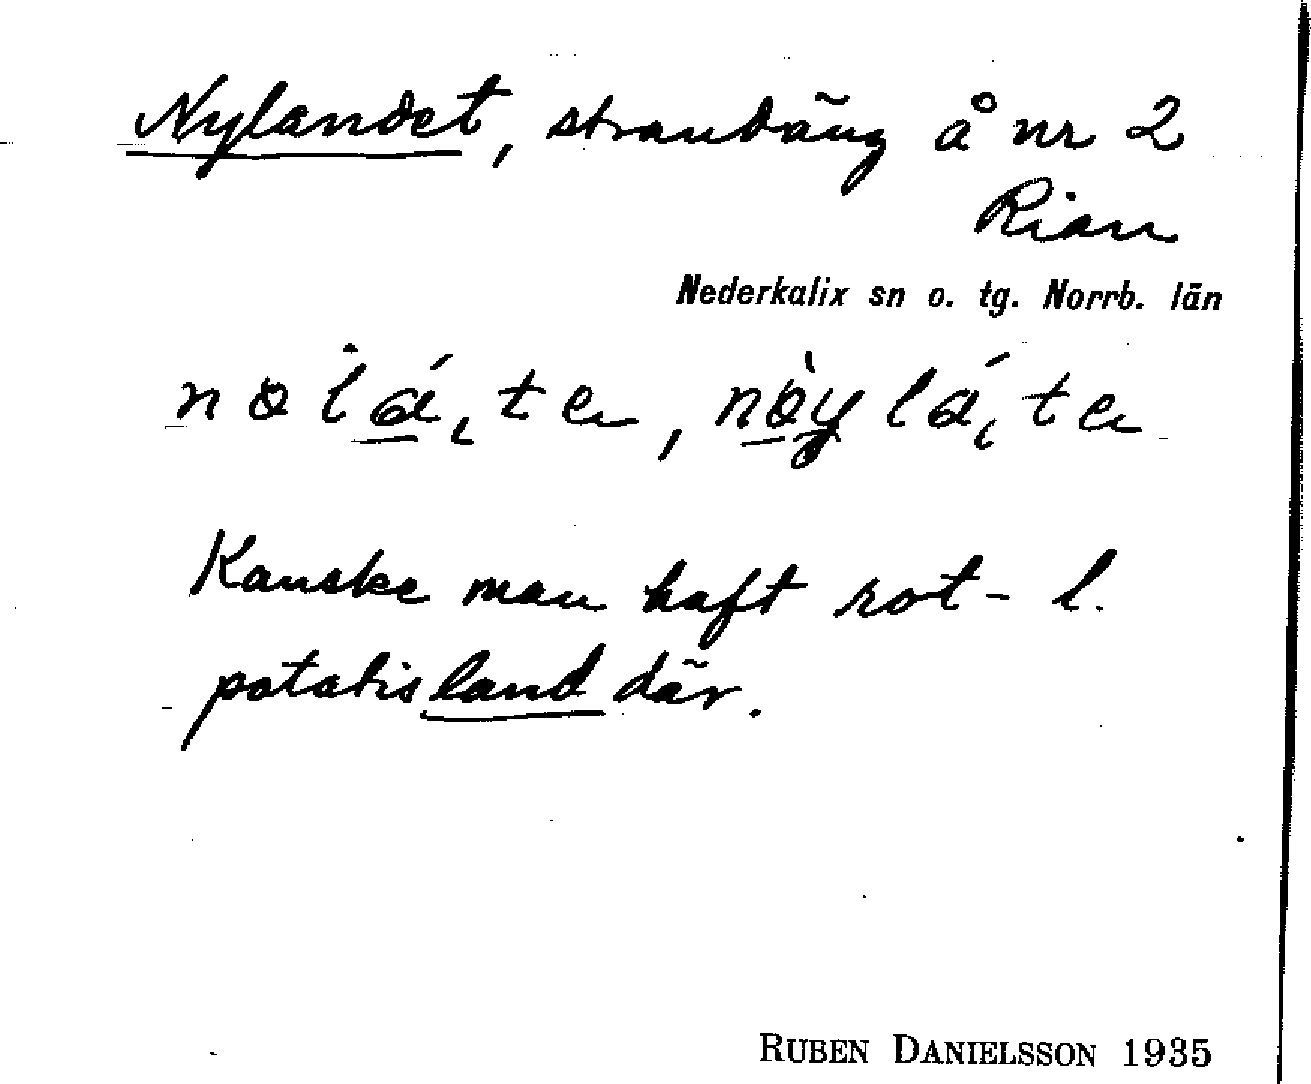 Nylandet, strandäng å nr 2
Rian
Nederkalix sn o. tg. Norrb. län
Kanske man haft rot- l.
potatisland där.
RUBEN DANIELSSON 1935